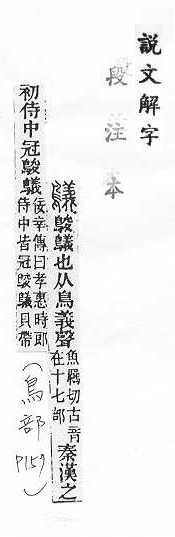 說文解字
段注本
鸃鵔鸃也从鳥義聲魚羈切古音在十七部秦漢之
初侍中冠鵔鸃佞幸傳曰孝惠時郎侍中皆冠鵔鸃貝帶
(鳥部 P159)